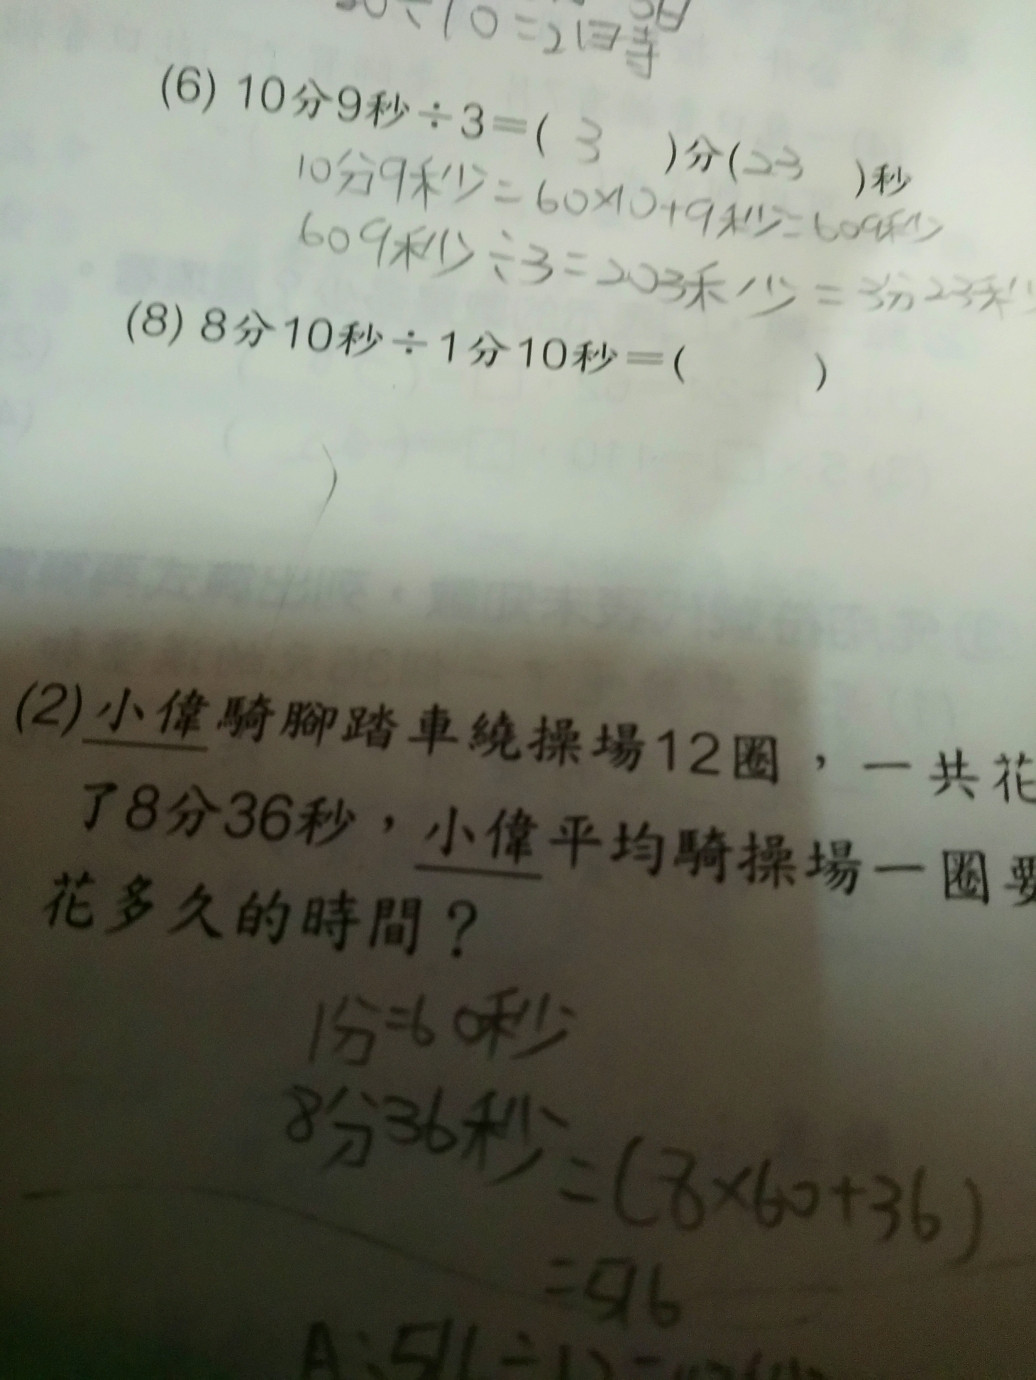 (6) 10分9秒÷3=( 3 )分(23 )秒
10分9秒=60×10+9秒=609秒
609秒÷3=203秒=3分23秒
(8) 8分10秒÷1分10秒=( )
(2)小偉騎腳踏車繞操場12圈，一共花
了8分36秒，小偉平均騎操場一圈要
花多久的時間？
1分=60秒
8分36秒=(8×60+36)
=516